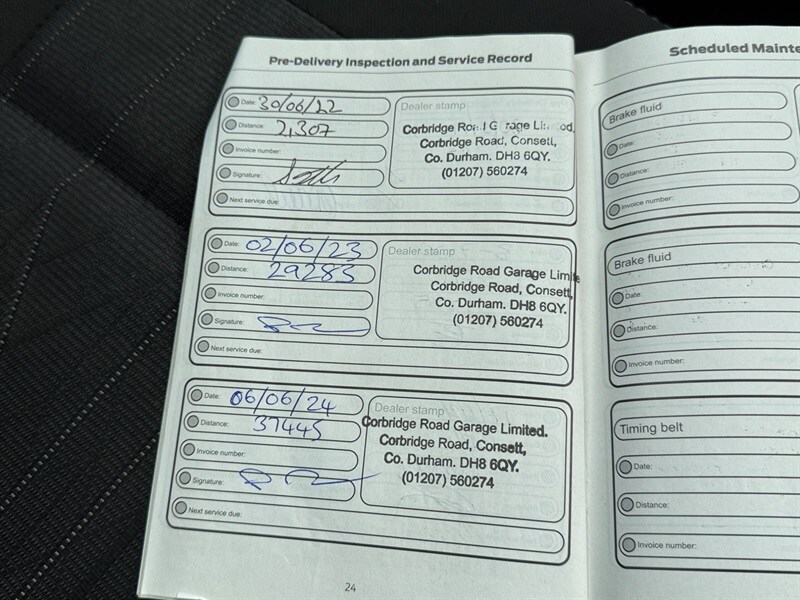 Pre-Delivery Inspection and Service Record
Date: 30/06/22
Distance: 21,307
Invoice number:
Signature:
Next service due:
Dealer stamp
Corbridge Road Garage Limited,
Corbridge Road, Consett,
Co. Durham. DH8 6QY.
(01207) 560274
Date: 02/06/23
Distance: 29285
Invoice number:
Signature:
Next service due:
Dealer stamp
Corbridge Road Garage Limite
Corbridge Road, Consett,
Co. Durham. DH8 6QY.
(01207) 560274
Date: 06/06/24
Distance: 37445
Invoice number:
Signature:
Next service due:
Dealer stamp
Corbridge Road Garage Limited.
Corbridge Road, Consett,
Co. Durham. DH8 6QY.
(01207) 560274
24
Scheduled Mainte
Brake fluid
Date:
Distance:
Invoice number:
Brake fluid
Date:
Distance:
Invoice number:
Timing belt
Date:
Distance:
Invoice number: